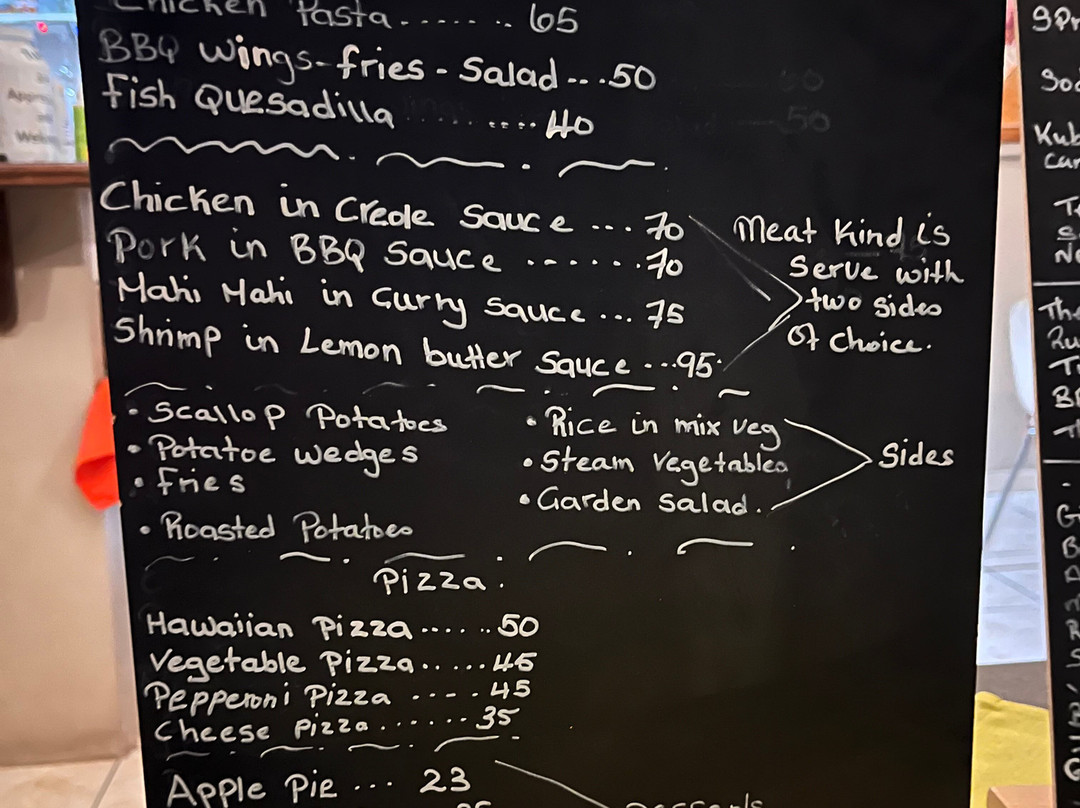 Chicken Pasta........ 65
BBQ wings-fries-Salad...50
Fish Quesadilla ......... 40
Chicken in Creole Sauce ... 70
Pork in BBQ Sauce .......70
Mahi Mahi in Curry Sauce ... 75
Shrimp in Lemon butter Sauce ...95
Meat Kind is
Serve with
two sides
of choice.
• Scallop Potatoes
• Potatoe wedges
• Fries
• Roasted Potatoes
• Rice in mix veg
• Steam Vegetables
• Garden Salad.
Sides
Pizza.
Hawaiian Pizza......50
Vegetable Pizza.....45
Pepperoni Pizza ....45
Cheese Pizza.......35
Apple Pie ... 23
Desserts